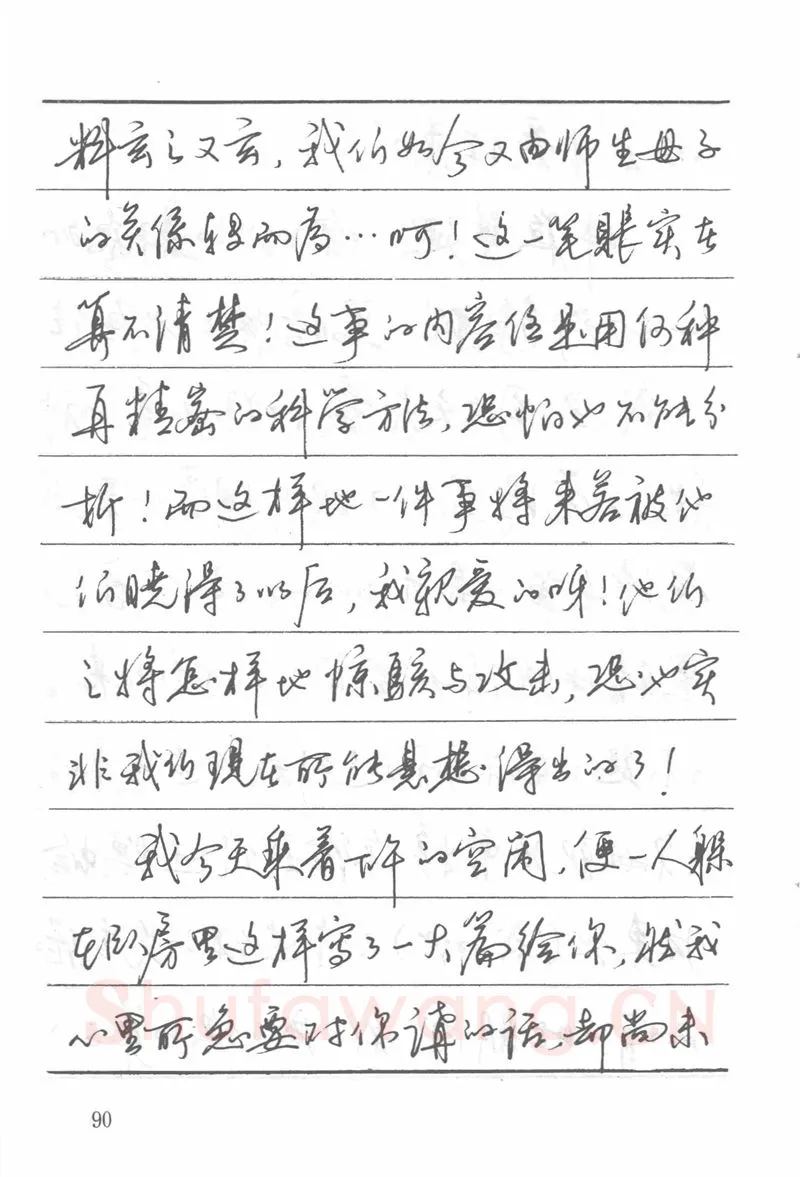 料玄之又玄，我们如今又由师生母子
的关係转而为…呵！这一笔賬实在
算不清楚！这事的内容任是用何种
再精密的科学方法，恐怕也不能分
析！而这样地一件事将来若被他
们晓得了以后，我親爱的呀！他们
之将怎样地惊骇与攻击，恐也实
非我们现在所能悬想得出的了！
我今天乘着下午的空闲，便一人躲
在卧房里这样写了一大篇给你，然我
心里所急要对你講的话，却尚未
Shufawang.CN
90